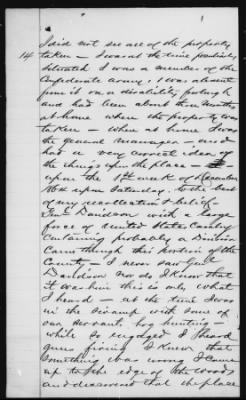 I did not see all of the property
14 taken — I was at the time peculiarly
situated I was a member of the
Confederate army, & was absent
from it on a disability furlough
and had been about three months
at home where the property was
taken — when at home I was
the general manager — and
had a very correct idea of
the things upon the place —
upon the 1st week of December
1864 upon Saturday, to the best
of my recollection & belief —
Genl Davidson with a large
force of United States Cavalry
Containing probably a Division
Came through this portion of the
County — I never saw Genl
Davidson nor do I know that
it was him this is only what
I heard — at the time I was
in the Swamp with some of
our servants, hog hunting —
while so engaged I heard
guns firing I knew that
something was wrong I came
up to the edge of the woods
and discovered that the place